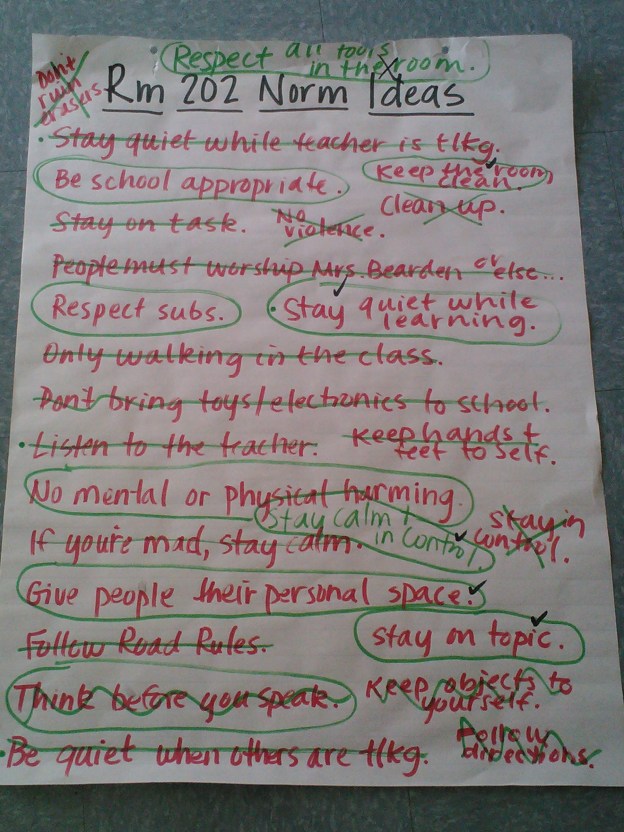 Respect all tools
in the room.
Don't
ruin
erasers
Rm 202 Norm Ideas
• Stay quiet while teacher is tlkg.
Be school appropriate.
Keep the room
clean.
Clean up.
Stay on task.
No
violence.
People must worship Mrs. Bearden or else...
Respect subs.
• Stay quiet while
learning.
Only walking in the class.
Don't bring toys/electronics to school.
• Listen to the teacher.
Keep hands +
feet to self.
No mental or physical harming.
Stay calm +
in control.
Stay in
control.
If you're mad, stay calm.
Give people their personal space.
Follow Road Rules.
Stay on topic.
Think before you speak.
Keep objects to
yourself.
Follow
directions.
• Be quiet when others are tlkg.